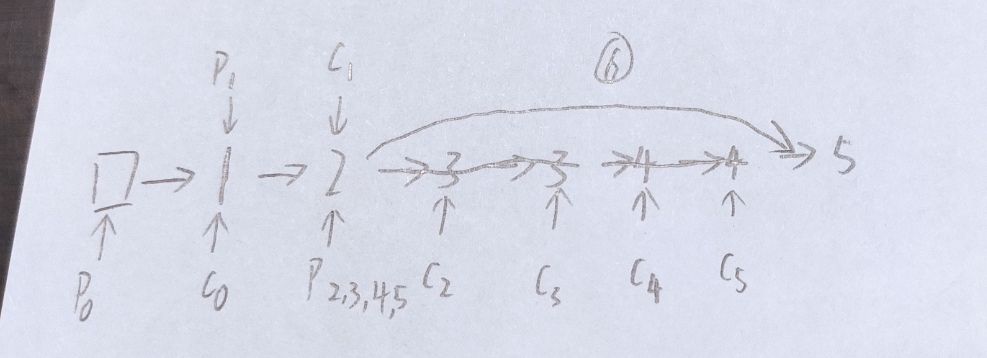 P₁ C₁ ⑥
□ → 1 → 2 → 3 → 3 → 4 → 4 → 5
P₀ C₀ P₂,₃,₄,₅ C₂ C₃ C₄ C₅